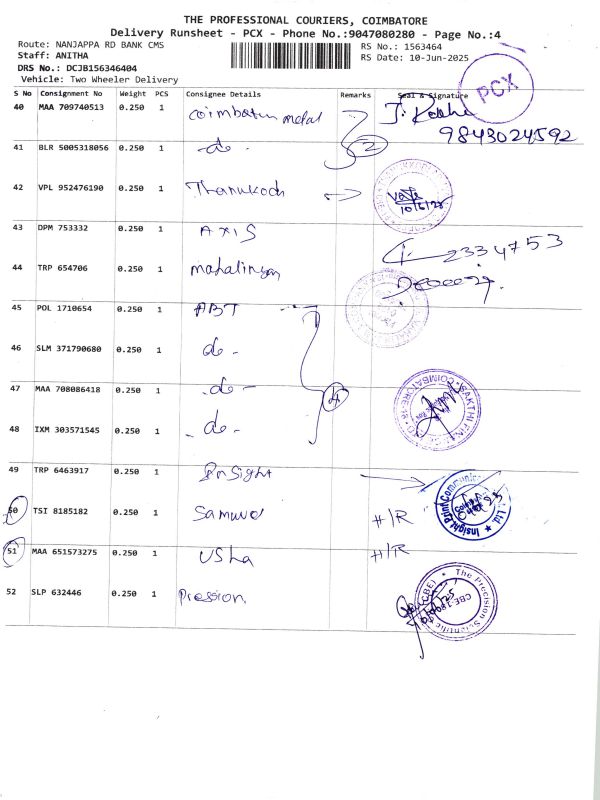 THE PROFESSIONAL COURIERS, COIMBATORE
Delivery Runsheet - PCX - Phone No.:9047080280 - Page No.:4
Route: NANJAPPA RD BANK CMS
Staff: ANITHA
DRS No.: DCJB156346404
Vehicle: Two Wheeler Delivery
RS No.: 1563464
RS Date: 10-Jun-2025
PCX
S No Consignment No Weight PCS Consignee Details Remarks Seal & Signature
40 MAA 709740513 0.250 1 Coimbatore metal
9843024592
41 BLR 5005318056 0.250 1 -do- 2
42 VPL 952476190 0.250 1 Thanukodi
43 DPM 753332 0.250 1 AXIS 2334753
44 TRP 654706 0.250 1 mahalingam
45 POL 1710654 0.250 1 ABT
46 SLM 371790680 0.250 1 do -
47 MAA 708086418 0.250 1 -do- 4
48 IXM 303571545 0.250 1 -do-
49 TRP 6463917 0.250 1 Insight
50 TSI 8185182 0.250 1 Samuvel #/R
51 MAA 651573275 0.250 1 USha #/R
52 SLP 632446 0.250 1 Pression
The Precision Scientific